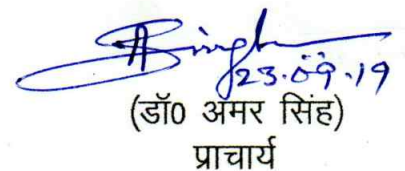 ASingh
23.09.19
(डॉ0 अमर सिंह)
प्राचार्य